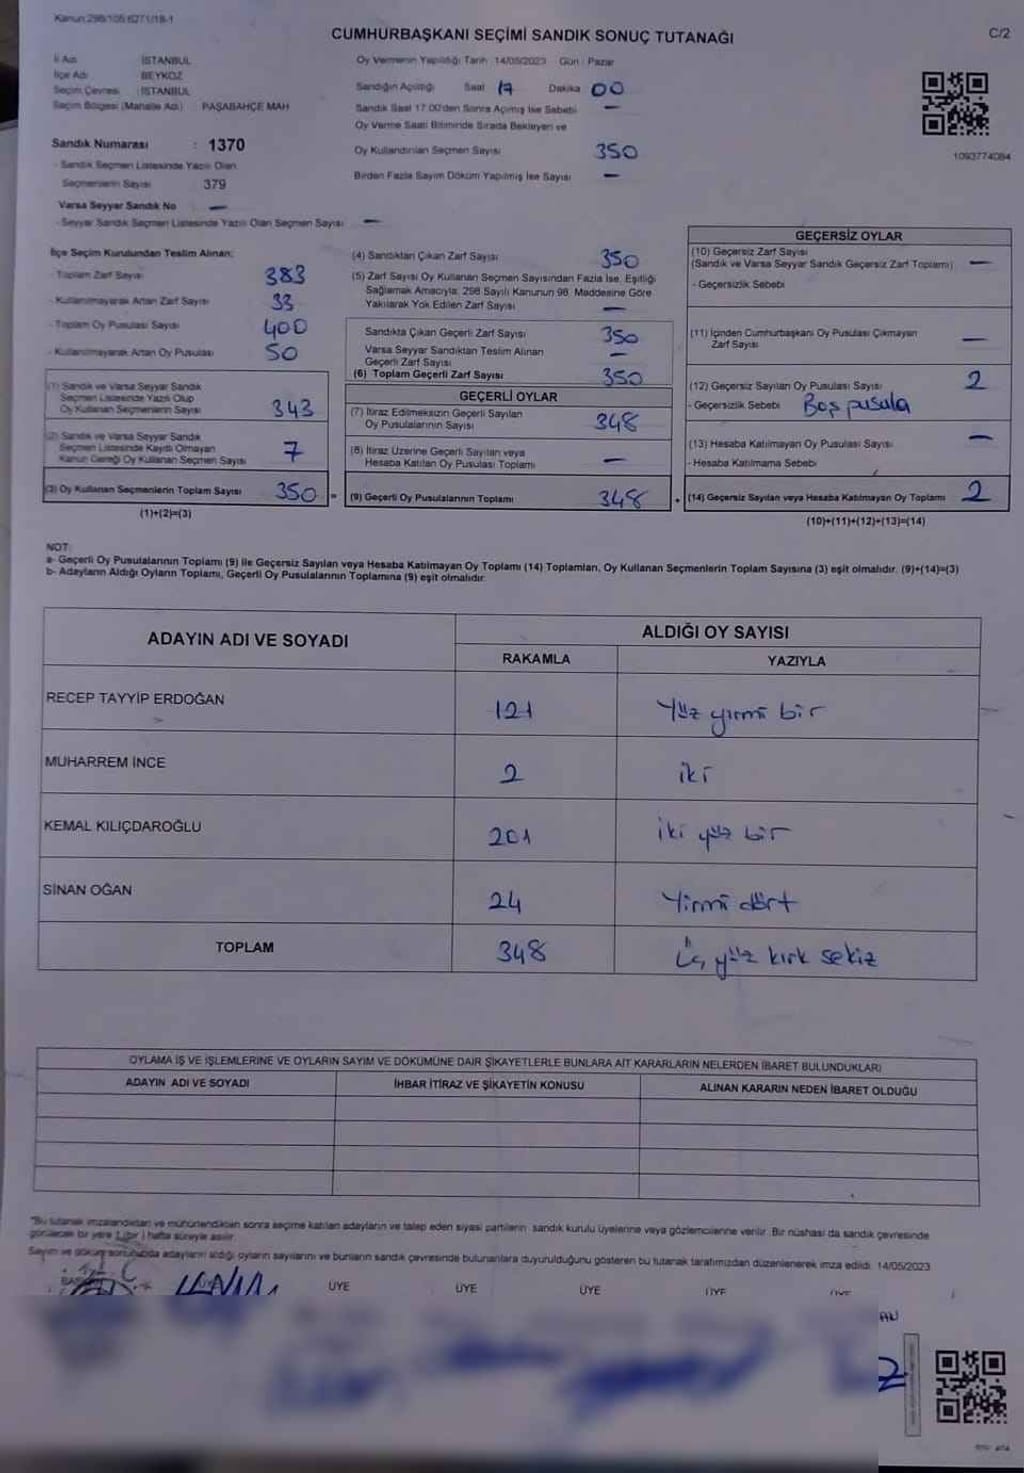 Kanun:298/105 6271/18-1
CUMHURBAŞKANI SEÇİMİ SANDIK SONUÇ TUTANAĞI
C/2
İl Adı İSTANBUL
İlçe Adı BEYKOZ
Seçim Çevresi : İSTANBUL
Seçim Bölgesi (Mahalle Adı) PAŞABAHÇE MAH
Oy Vermenin Yapıldığı Tarih 14/05/2023 Gün : Pazar
Sandığın Açıldığı Saat 17 Dakika 00
Sandık Saat 17:00'den Sonra Açmış İse Sebebi —
Oy Verme Saati Bitiminde Sırada Bekleyen ve
Oy Kullandırılan Seçmen Sayısı 350
Birden Fazla Sayım Döküm Yapılmış İse Sayısı —
1093774084
Sandık Numarası : 1370
- Sandık Seçmen Listesinde Yazılı Olan
Seçmenlerin Sayısı 379
Varsa Seyyar Sandık No —
- Seyyar Sandık Seçmen Listesinde Yazılı Olan Seçmen Sayısı —
İlçe Seçim Kurulundan Teslim Alınan:
- Toplam Zarf Sayısı 383
- Kullanılmayarak Artan Zarf Sayısı 33
- Toplam Oy Pusulası Sayısı 400
- Kullanılmayarak Artan Oy Pusulası 50
(1) Sandık ve Varsa Seyyar Sandık
Seçmen Listesinde Yazılı Olup
Oy Kullanan Seçmenlerin Sayısı 343
(2) Sandık ve Varsa Seyyar Sandık
Seçmen Listesinde Kayıtlı Olmayan
Kanun Gereği Oy Kullanan Seçmen Sayısı 7
(3) Oy Kullanan Seçmenlerin Toplam Sayısı 350 =
(1)+(2)=(3)
(4) Sandıktan Çıkan Zarf Sayısı 350
(5) Zarf Sayısı Oy Kullanan Seçmen Sayısından Fazla İse, Eşitliği
Sağlamak Amacıyla, 298 Sayılı Kanunun 98. Maddesine Göre
Yakılarak Yok Edilen Zarf Sayısı —
Sandıkta Çıkan Geçerli Zarf Sayısı 350
Varsa Seyyar Sandıktan Teslim Alınan
Geçerli Zarf Sayısı —
(6) Toplam Geçerli Zarf Sayısı 350
GEÇERLİ OYLAR
(7) İtiraz Edilmeksizin Geçerli Sayılan
Oy Pusulalarının Sayısı 348
(8) İtiraz Üzerine Geçerli Sayılan veya
Hesaba Katılan Oy Pusulası Toplamı —
(9) Geçerli Oy Pusulalarının Toplamı 348 +
GEÇERSİZ OYLAR
(10) Geçersiz Zarf Sayısı
(Sandık ve Varsa Seyyar Sandık Geçersiz Zarf Toplamı) —
- Geçersizlik Sebebi
(11) İçinden Cumhurbaşkanı Oy Pusulası Çıkmayan
Zarf Sayısı —
(12) Geçersiz Sayılan Oy Pusulası Sayısı 2
- Geçersizlik Sebebi Boş pusula
(13) Hesaba Katılmayan Oy Pusulası Sayısı —
- Hesaba Katılmama Sebebi
(14) Geçersiz Sayılan veya Hesaba Katılmayan Oy Toplamı 2
(10)+(11)+(12)+(13)=(14)
NOT:
a- Geçerli Oy Pusulalarının Toplamı (9) ile Geçersiz Sayılan veya Hesaba Katılmayan Oy Toplamı (14) Toplamları, Oy Kullanan Seçmenlerin Toplam Sayısına (3) eşit olmalıdır. (9)+(14)=(3)
b- Adayların Aldığı Oyların Toplamı, Geçerli Oy Pusulalarının Toplamına (9) eşit olmalıdır.
ADAYIN ADI VE SOYADI
ALDIĞI OY SAYISI
RAKAMLA YAZIYLA
RECEP TAYYİP ERDOĞAN 121 Yüz yirmi bir
MUHARREM İNCE 2 iki
KEMAL KILIÇDAROĞLU 201 iki yüz bir
SİNAN OĞAN 24 Yirmi dört
TOPLAM 348 Üç yüz kırk sekiz
OYLAMA İŞ VE İŞLEMLERİNE VE OYLARIN SAYIM VE DÖKÜMÜNE DAİR ŞİKAYETLERLE BUNLARA AİT KARARLARIN NELERDEN İBARET BULUNDUKLARI
ADAYIN ADI VE SOYADI İHBAR İTİRAZ VE ŞİKAYETİN KONUSU ALINAN KARARIN NEDEN İBARET OLDUĞU
"Bu tutanak imzalandıktan ve mühürlendikten sonra seçime katılan adayların ve talep eden siyasi partilerin sandık kurulu üyelerine veya gözlemcilerine verilir. Bir nüshası da sandık çevresinde
görülecek bir yere 1 (bir) hafta süreyle asılır.
Sayım ve döküm sonucunda adayların aldığı oyların sayılarını ve bunların sandık çevresinde bulunanlara duyurulduğunu gösteren bu tutanak tarafımızdan düzenlenerek imza edildi. 14/05/2023
ÜYE ÜYE ÜYE ÜYE ÜYE